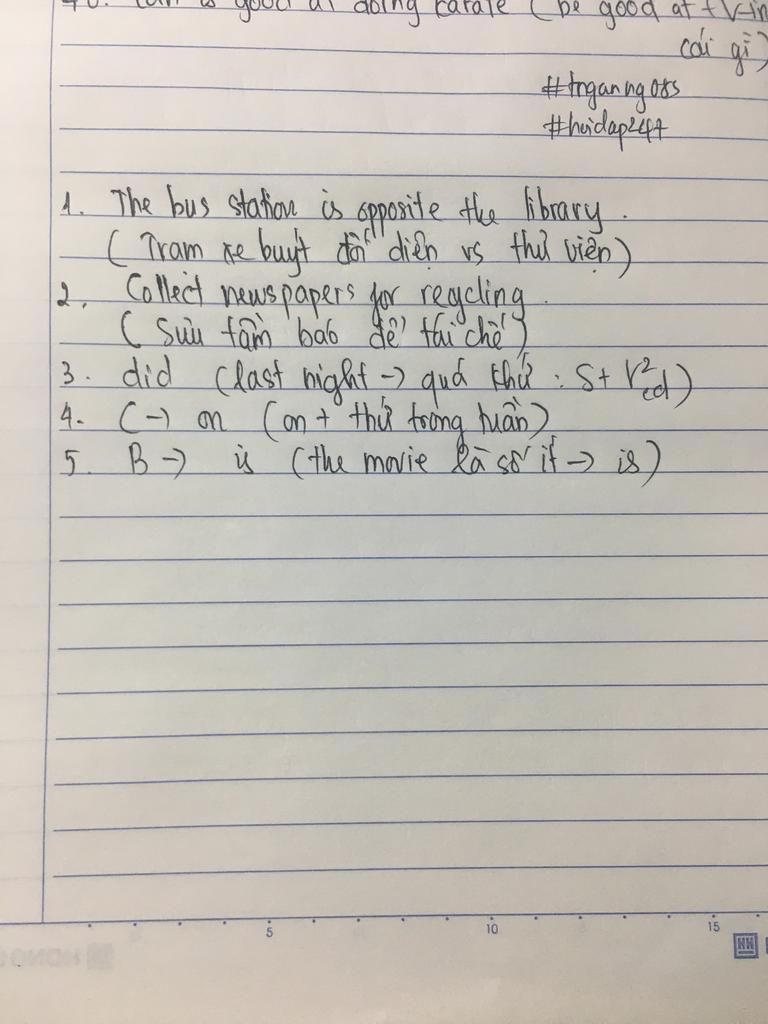 is good at doing karate ( be good at + V-in
cái gì)
#tnganng085
#hoidap247
1. The bus station is opposite the library.
( Trạm xe buýt đối diện vs thư viện)
2. Collect newspapers for recycling.
( Sưu tầm báo để tái chế)
3. did (last night -> quá khứ : S + V2ed)
4. C -> on (on + thứ trong tuần)
5. B -> is (the movie là số ít -> is)
5 10 15